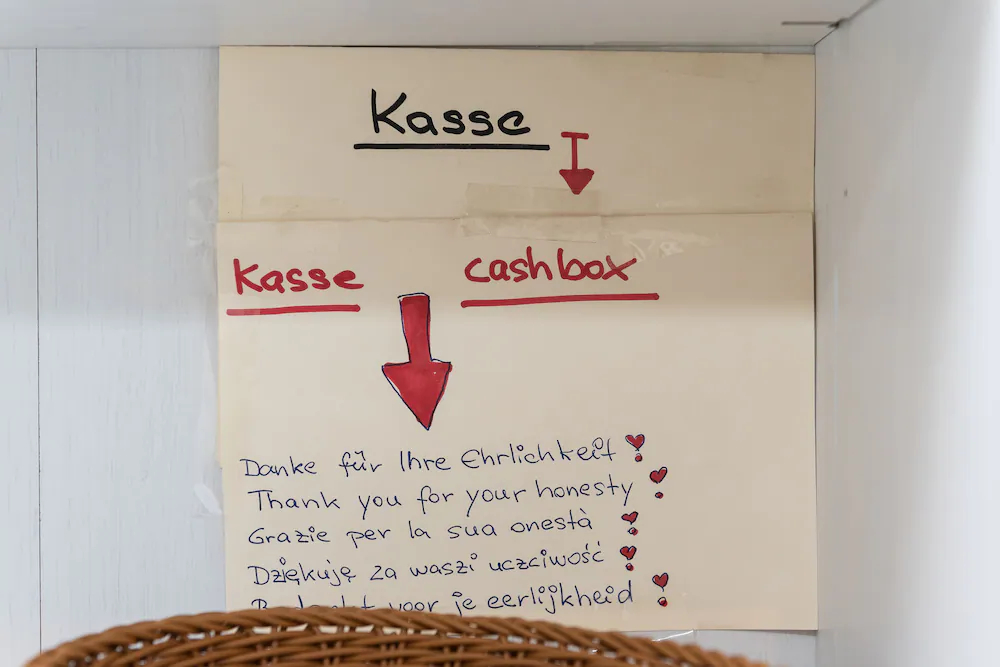 Kasse
Kasse cashbox
Danke für Ihre Ehrlichkeit
Thank you for your honesty
Grazie per la sua onestà
Dziękuję za waszi uczciwość
voor je eerlijkheid